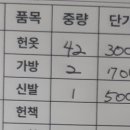 품목 중량 단가
헌옷 42 300
가방 2 700
신발 1 500
헌책